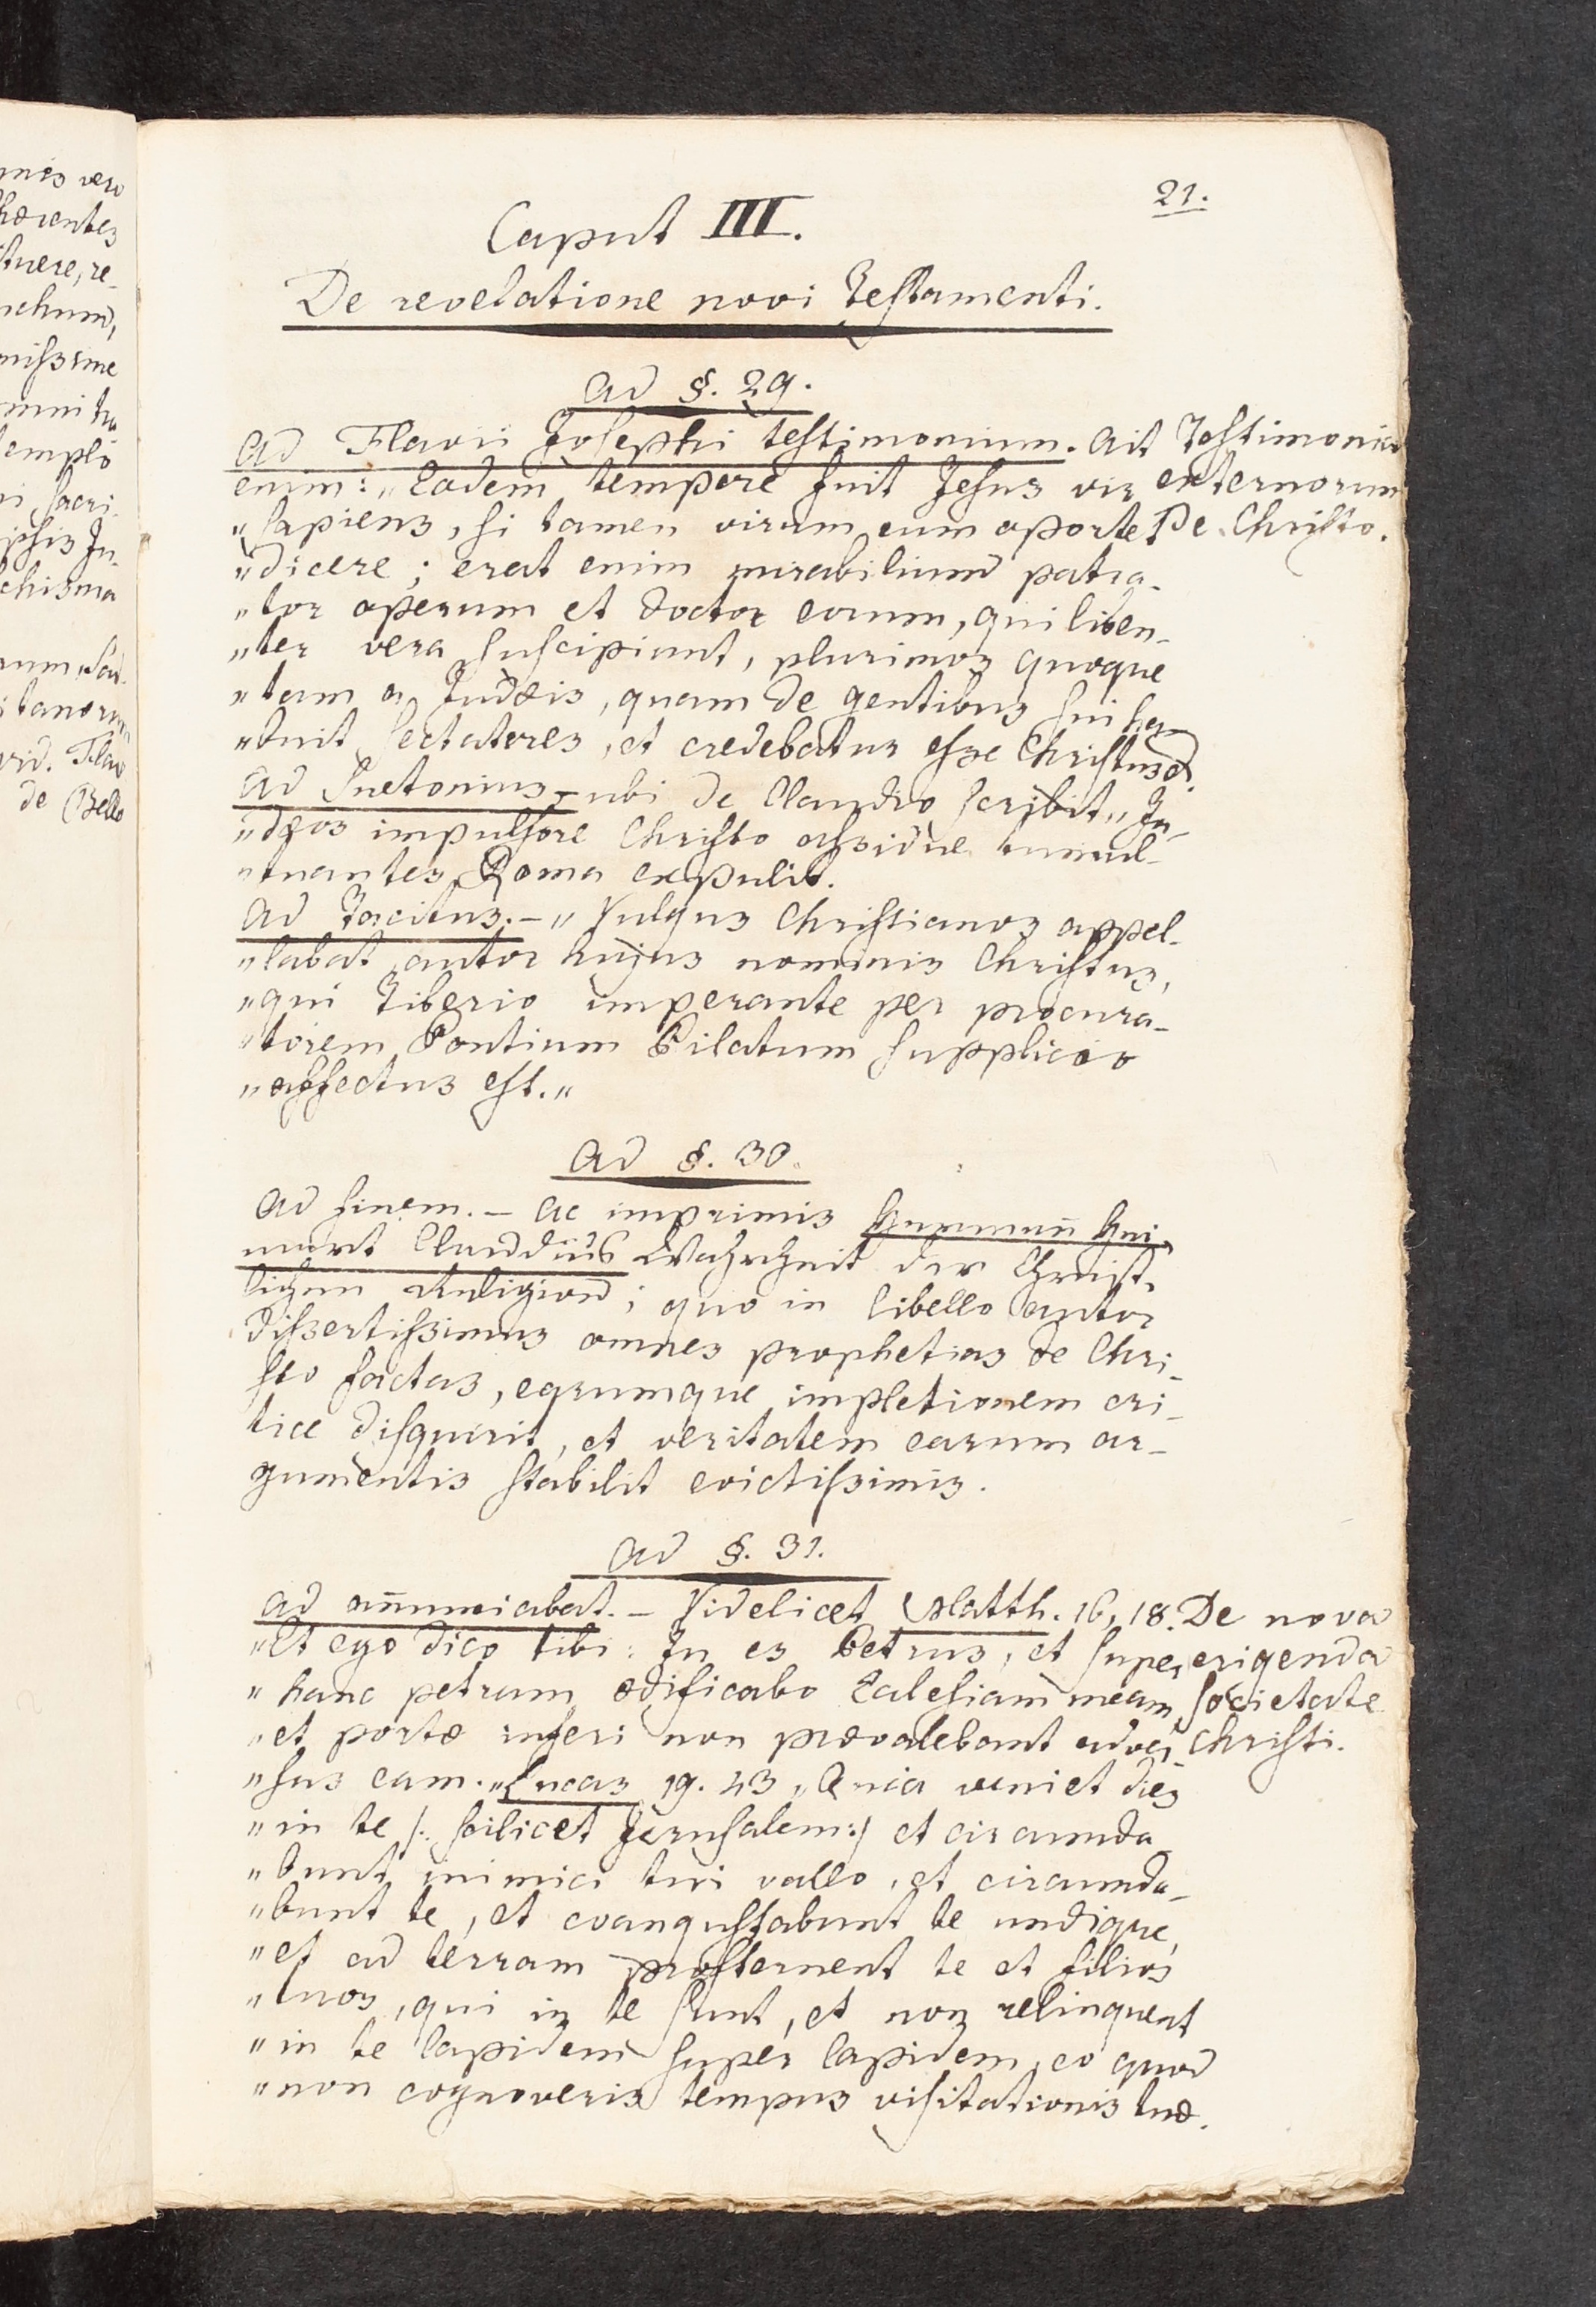 21.
Caput III.
De revelatione novi Testamenti.
ad §. 29.
ad Flavii Josephi testimonium. ait
enim: „Eodem tempore fuit Jesus vir
„sapiens, si tamen virum eum oportet
„dicere; erat enim mirabilium patra-
„tor operum et doctor eorum, qui liben-
„ter vera suscipiunt, plurimos quoque
„tam a Judæis, quam de gentibus sui ha-
„buit sectatores, et credebatur esse Christus.
Testimonia
externorum
De Christo.
ad Suetonius – ubi de Claudio scribit „Ju-
„dæos impulsore Christo assidue tumul-
„tuantes Roma expulit.
ad Tacitus. – „Vulgus Christianos appel-
„labat, autor hujus nominis Christus,
„qui Tiberio imperante per procura-
„torem Pontium Pilatum supplicio
„affectus est.„
ad §. 30.
ad finem. – ac imprimis Hermann
Claudius Wahrheit der Christ-
lichen Religion; quo in libello autor
dissertissimus omnes prophetias de Chri-
sto factas, earumque impletionem cri-
tice disquirit, et veritatem earum ar-
gumentis stabilit evictissimis.
ad §. 31.
ad anunciabat. – Videlicet Matth. 16, 18.
„Et ego dico tibi: Tu es Petrus, et super
„hanc petram ædificabo Ecclesiam meam
„et portæ inferi non prævalebant adver
„sus eam.„ Lucas 19. 43 „Quia veniet dies
„in te /: scilicet Jerusalem:/ et circumda
„bunt inimici tui vallo, et circumda-
„bunt te, et coangustabunt te undique,
„et ad terram prosternent te et filios
„tuos, qui in te sunt, et non relinquent
„in te lapidem super lapidem, eo quod
„non cognoveris tempus visitationis tuæ.
De nova
erigenda
societate
Christi.
nes vero
hærentes
tuere, re-
chum,
nissime
omni
templo
ni, sacri-
ipsis Ju-
chisma
num, Sad-
itanorum
vid. Flav
de Bello